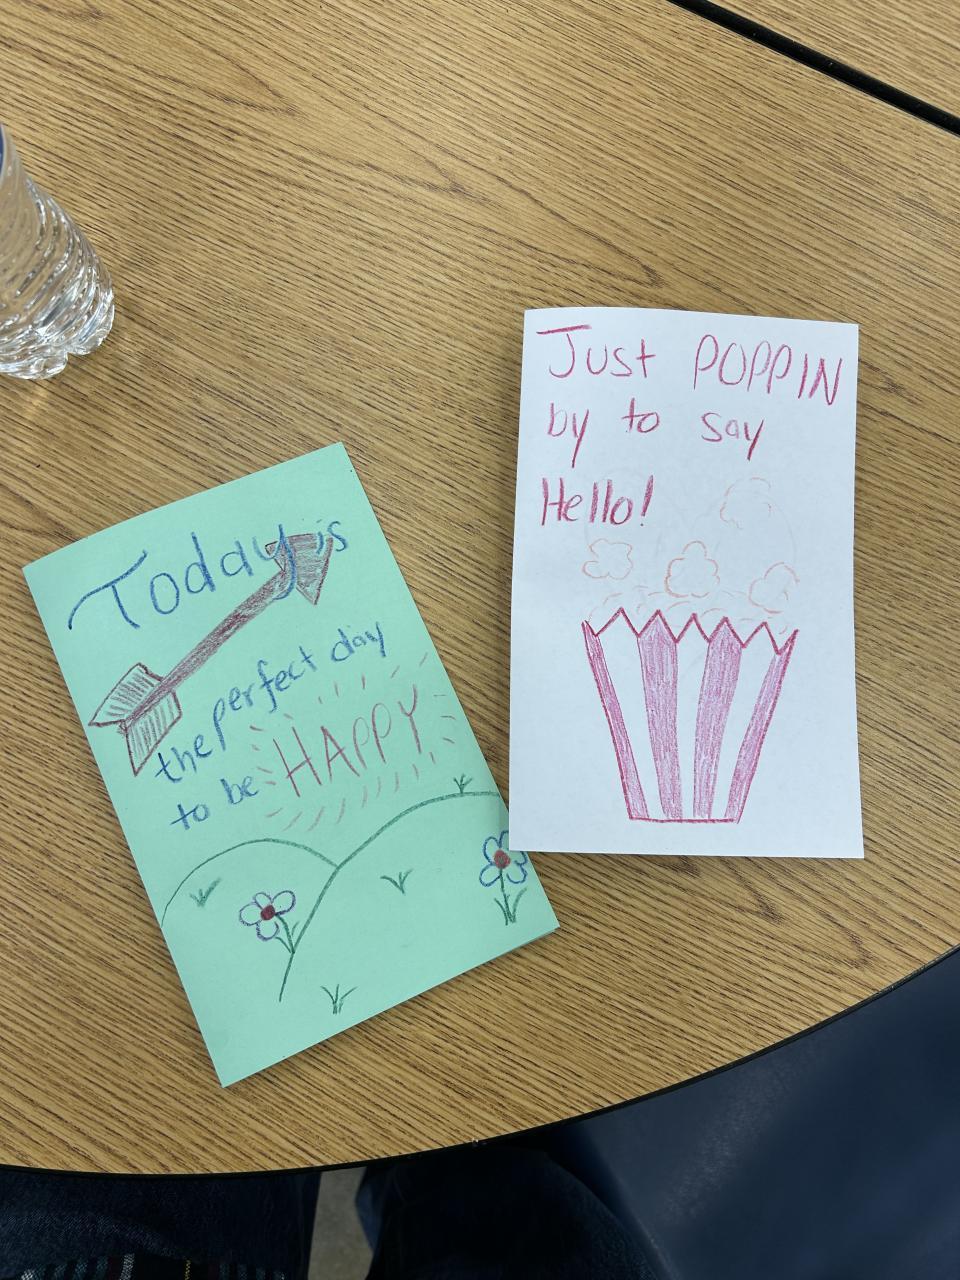 Today is
the perfect day
to be HAPPY
Just POPPIN
by to say
Hello!